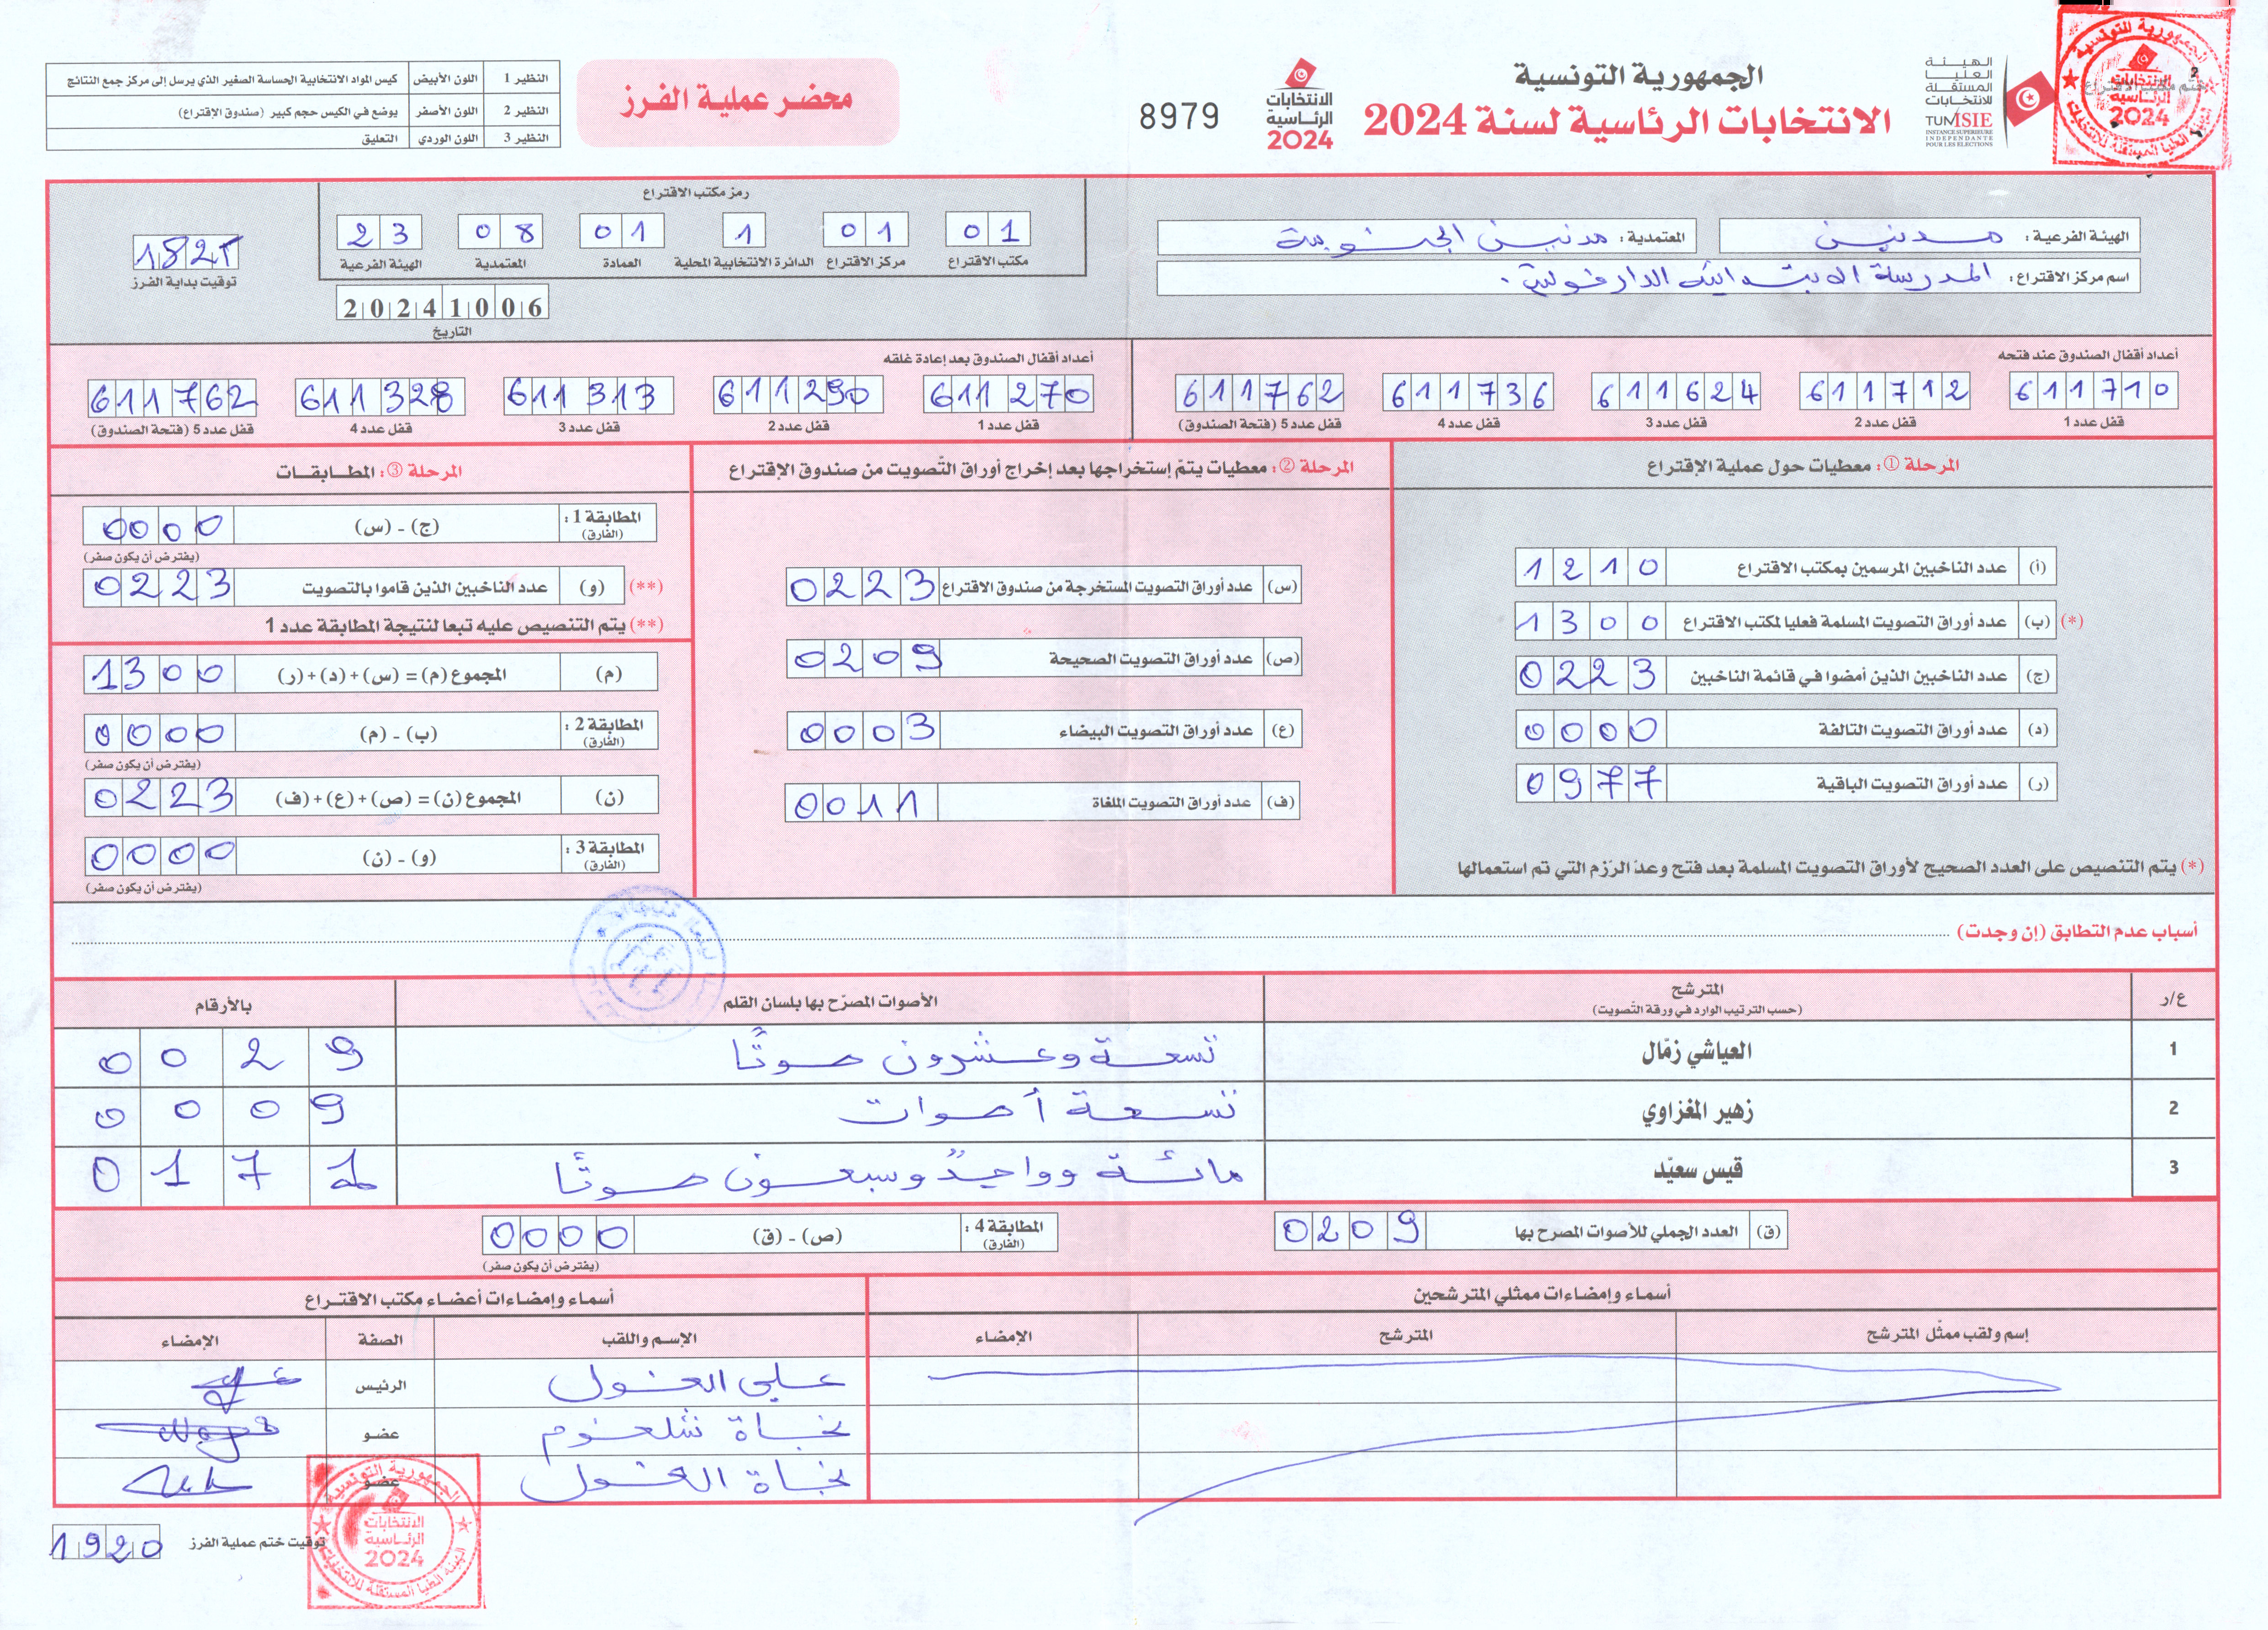 الجمهورية التونسية
الانتخابات الرئاسية لسنة 2024
الهيئة العليا المستقلة للانتخابات
TUNISIE
INSTANCE SUPERIEURE INDEPENDANTE POUR LES ELECTIONS
الانتخابات الرئاسية 2024
8979
محضر عملية الفرز
النظير 1 اللون الأبيض كيس المواد الانتخابية الحساسة الصغير الذي يرسل إلى مركز جمع النتائج
النظير 2 اللون الأصفر يوضع في الكيس حجم كبير (صندوق الإقتراع)
النظير 3 اللون الوردي التعليق
الهيئة الفرعية : مدنين
المعتمدية : مدنين الجنوبية
اسم مركز الاقتراع : المدرسة الابتدائية
رمز مكتب الاقتراع
01 01 1 01 08 23
مكتب الاقتراع مركز الاقتراع الدائرة الانتخابية المحلية العمادة المعتمدية الهيئة الفرعية
20241006
التاريخ
1825
توقيت بداية الفرز
أعداد أقفال الصندوق عند فتحه
611710 611712 611624 611736 611762
قفل عدد 1 قفل عدد 2 قفل عدد 3 قفل عدد 4 قفل عدد 5 (فتحة الصندوق)
أعداد أقفال الصندوق بعد إعادة غلقه
611270 611290 611313 611328 611762
قفل عدد 1 قفل عدد 2 قفل عدد 3 قفل عدد 4 قفل عدد 5 (فتحة الصندوق)
المرحلة ① : معطيات حول عملية الإقتراع
(أ) عدد الناخبين المرسمين بمكتب الاقتراع 1210
(*) (ب) عدد أوراق التصويت المسلمة فعليا لمكتب الاقتراع 1300
(ج) عدد الناخبين الذين أمضوا في قائمة الناخبين 0223
(د) عدد أوراق التصويت التالفة 0000
(ر) عدد أوراق التصويت الباقية 0977
(*) يتم التنصيص على العدد الصحيح لأوراق التصويت المسلمة بعد فتح وعدّ الرّزم التي تم استعمالها
المرحلة ② : معطيات يتمّ إستخراجها بعد إخراج أوراق التّصويت من صندوق الإقتراع
(س) عدد أوراق التصويت المستخرجة من صندوق الاقتراع 0223
(ص) عدد أوراق التصويت الصحيحة 0209
(ع) عدد أوراق التصويت البيضاء 0003
(ف) عدد أوراق التصويت الملغاة 0011
المرحلة ③ : المطابقات
المطابقة 1 : (الفارق) (ج) - (س) 0000
(يفترض أن يكون صفر)
(**) (و) عدد الناخبين الذين قاموا بالتصويت 0223
(**) يتم التنصيص عليه تبعا لنتيجة المطابقة عدد 1
(م) المجموع (م) = (س) + (د) + (ر) 1300
المطابقة 2 : (الفارق) (ب) - (م) 0000
(يفترض أن يكون صفر)
(ن) المجموع (ن) = (ص) + (ع) + (ف) 0223
المطابقة 3 : (الفارق) (و) - (ن) 0000
(يفترض أن يكون صفر)
أسباب عدم التطابق (إن وجدت)
ع/ر المترشح (حسب الترتيب الوارد في ورقة التّصويت) الأصوات المصرّح بها بلسان القلم بالأرقام
1 العياشي زمّال تسعة وعشرون صوتًا 0029
2 زهير المغزاوي تسعة أصوات 0009
3 قيس سعيّد مائة وواحد وسبعون صوتًا 0171
(ق) العدد الجملي للأصوات المصرح بها 0209
المطابقة 4 : (الفارق) (ص) - (ق) 0000
(يفترض أن يكون صفر)
أسماء وإمضاءات ممثلي المترشحين
إسم ولقب ممثّل المترشح المترشح الإمضاء
أسماء وإمضاءات أعضاء مكتب الاقتراع
الإسم واللقب الصفة الإمضاء
علي الغول الرئيس
نجاة شلغوم عضو
نجاة الغول عضو
توقيت ختم عملية الفرز 1920